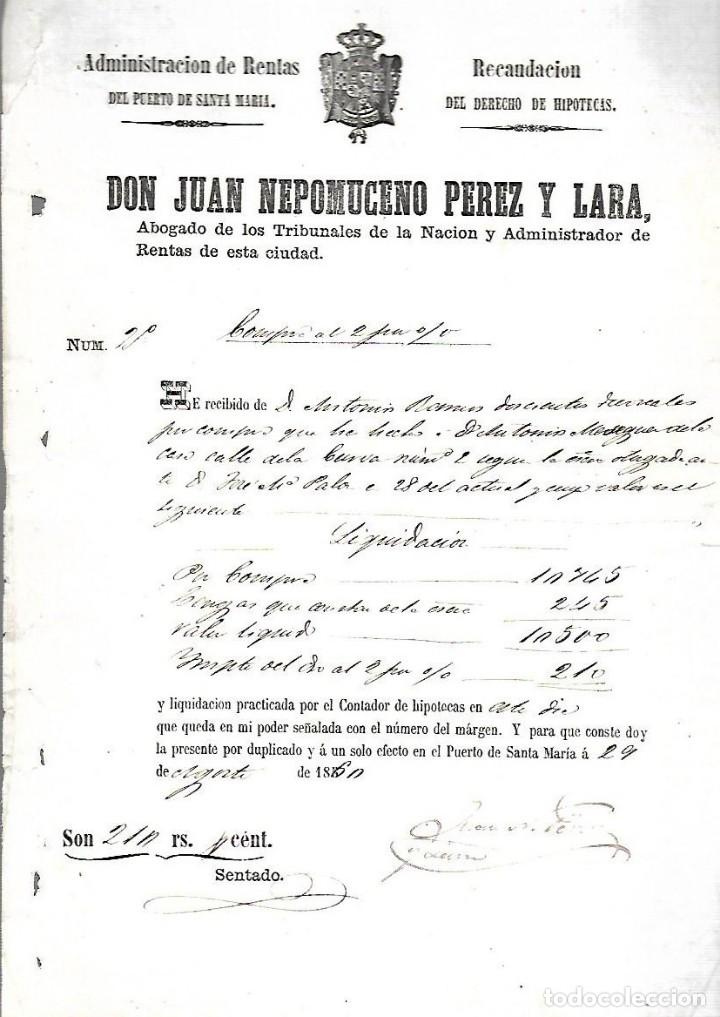 Administracion de Rentas
DEL PUERTO DE SANTA MARIA.
Recaudacion
DEL DERECHO DE HIPOTECAS.
DON JUAN NEPOMUCENO PEREZ Y LARA,
Abogado de los Tribunales de la Nacion y Administrador de
Rentas de esta ciudad.
NUM.
Compra al 2 por o/o
HE recibido de D. Antonio Ramos doscientos diez reales
por compra que ha hecho a Dn Antonio de la
casa calle de la numo 2 segun la
D José Ma 28 del actual y cuyo valor es el
siguiente
Liquidacion
Por Compra 10745
Cargas que constan de la 245
Valor liquido 10500
Impte del dro al 2 por o/o 210
y liquidacion practicada por el Contador de hipotecas en este dia
que queda en mi poder señalada con el número del márgen. Y para que conste doy
la presente por duplicado y á un solo efecto en el Puerto de Santa María á 29
de Agosto de 1860
Son 210 rs. cént.
Sentado.
todocoleccion